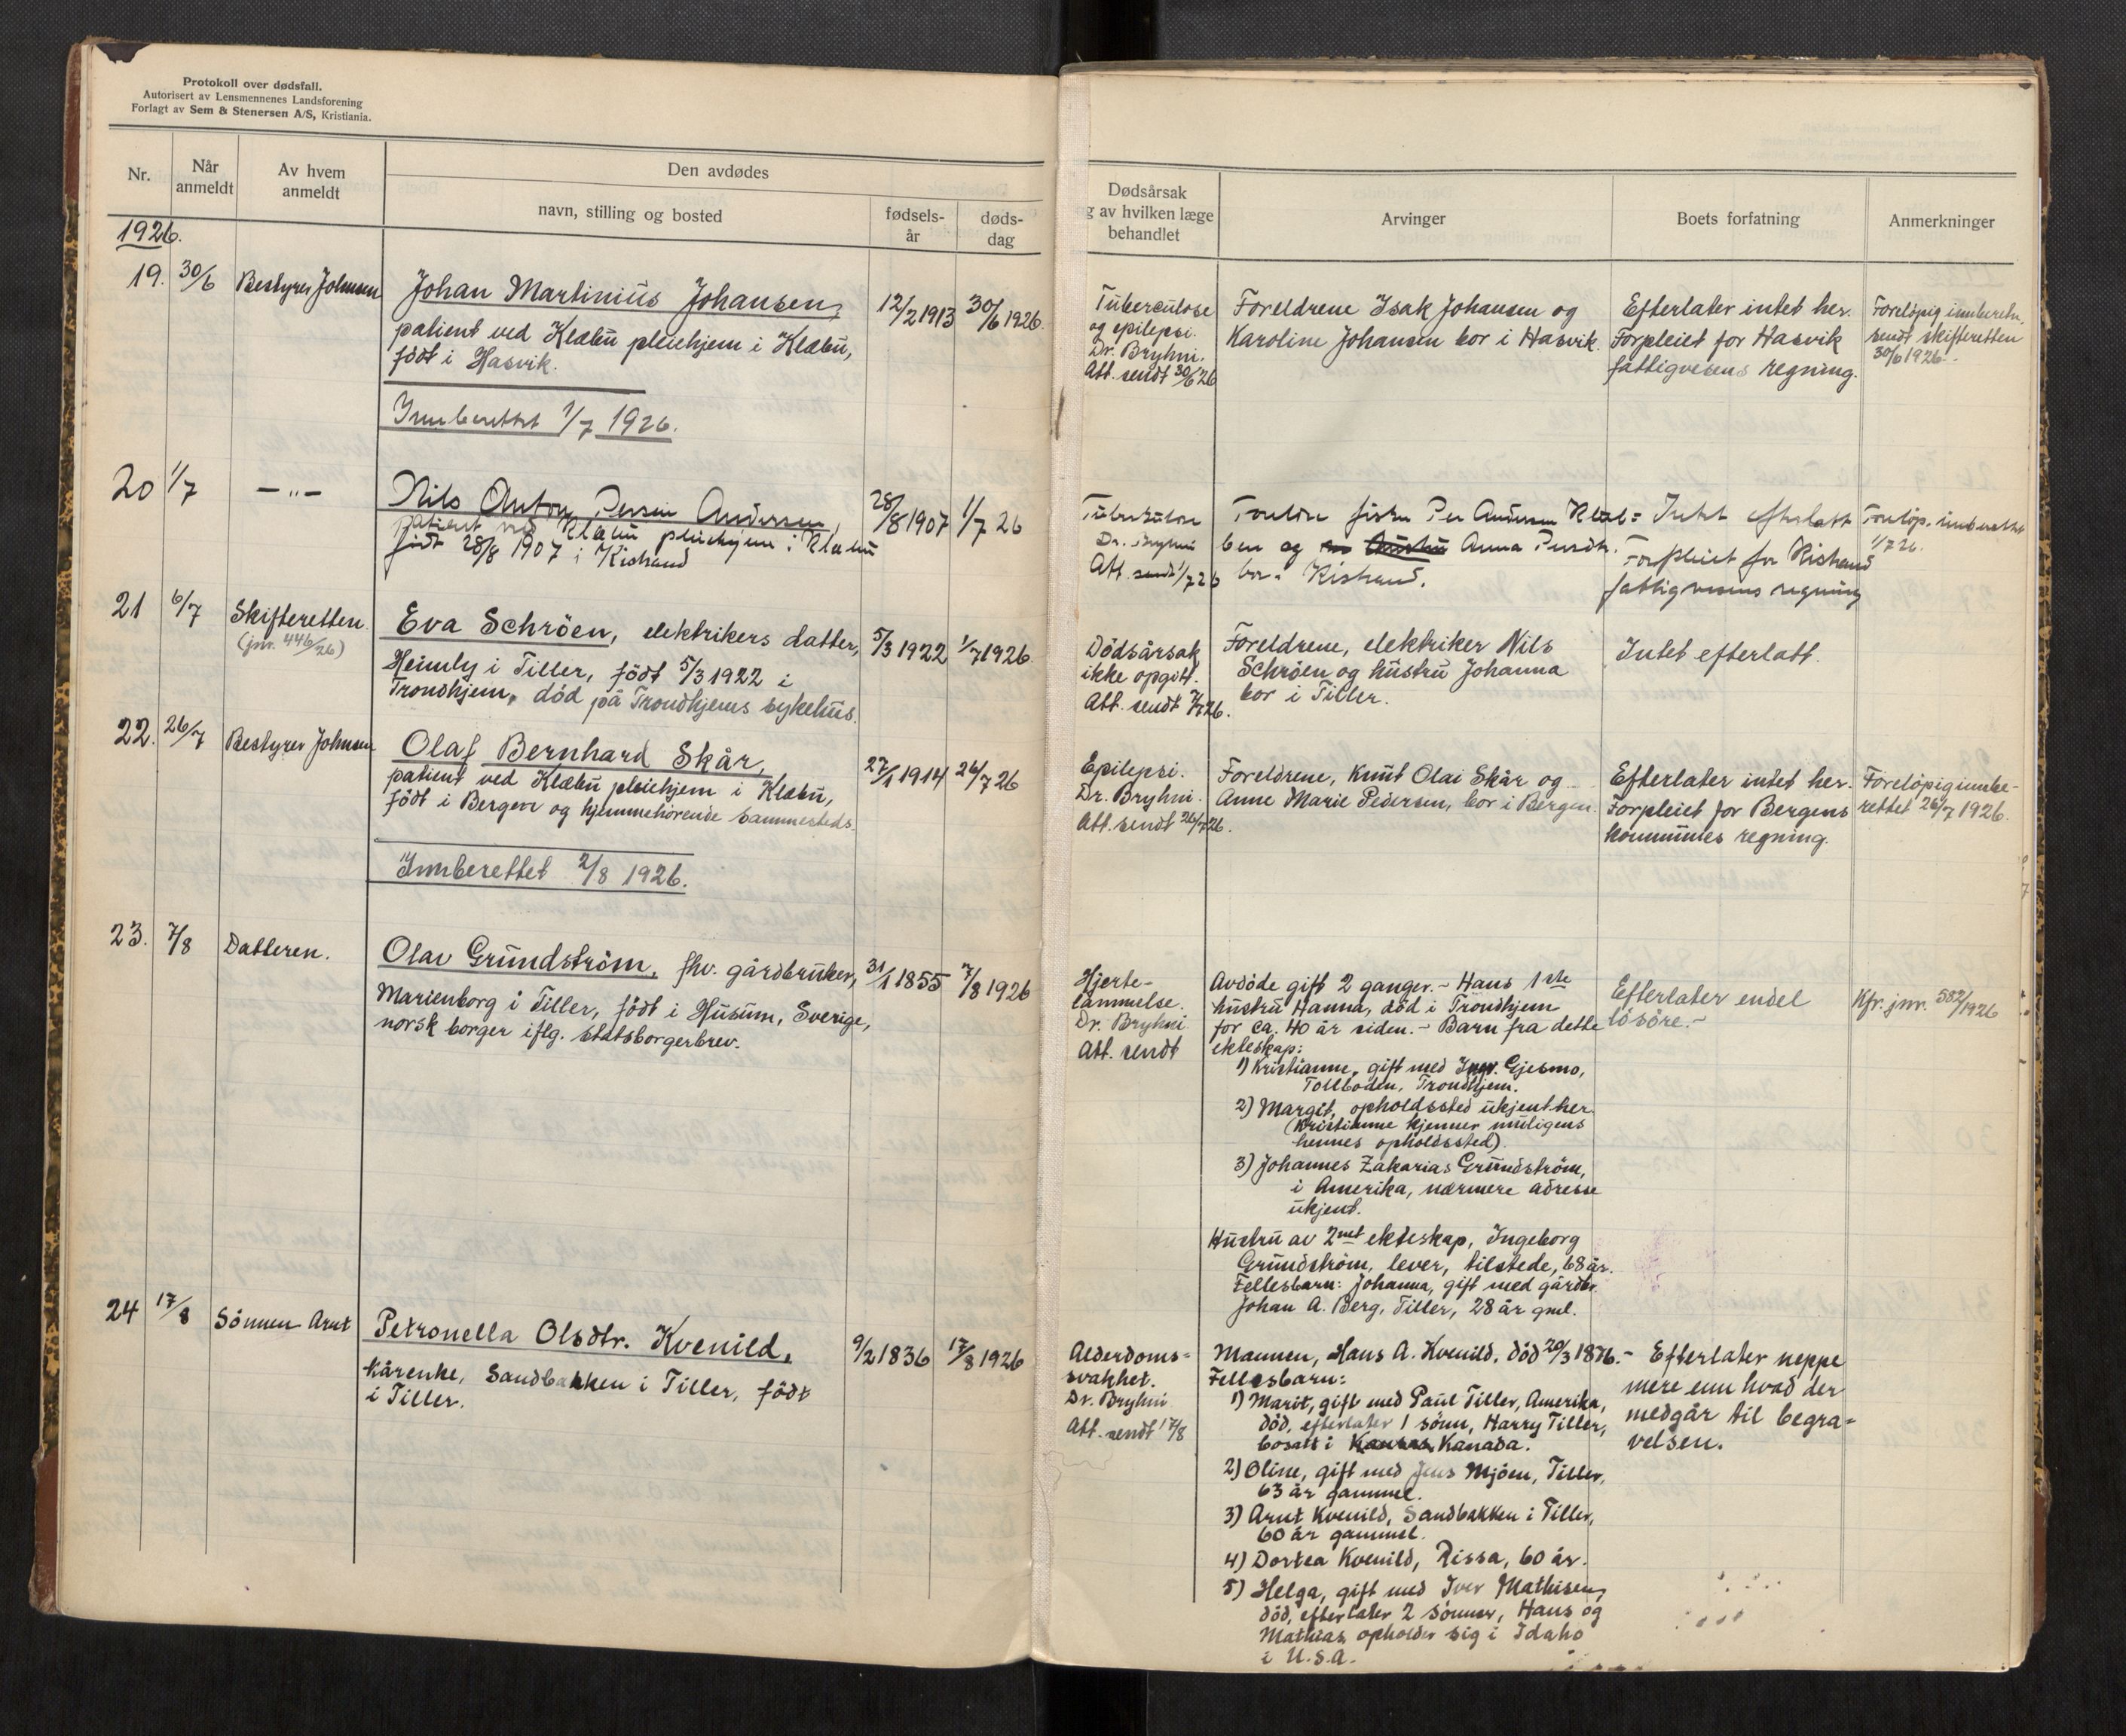 Protokoll over dødsfall.
Autorisert av Lensmennenes Landsforening
Forlagt av Sem & Stenersen A/S, Kristiania.
Nr.
Når
anmeldt
Av hvem
anmeldt
Den avdødes
navn, stilling og bosted
fødsels-
år
døds-
dag
Dødsårsak
g av hvilken læge
behandlet
Arvinger
Boets forfatning
Anmerkninger
1926.
19. 30/6 Bestyrer Johnsen
Johan Martinius Johansen,
patient ved Klæbu pleiehjem i Klæbu,
født i Hasvik.
12/2 1913 30/6 1926.
Tuberculose
og epilepsi.
Dr. Bryhni.
Att. sendt 30/6 26
Foreldrene Isak Johansen og
Karoline Johansen bor i Hasvik.
Efterlater intet her.
Forpleiet for Hasvik
fattigvesens regning.
Foreløpig innberetn.
sendt skifteretten
30/6 1926.
Innberettet 1/7 1926.
20 1/7 —"—
Nils Anton Persen Andersen,
patient ved Klæbu pleiehjem i Klæbu
født 28/8 1907 i Kistrand
28/8 1907 1/7 26
Tuberkulose
Dr. Bryhni
Att. sendt 1/7 26
Foreldre fisker Per Andersen Klub=
ben og Anna Persdtr.
bor i Kistrand.
Intet efterlatt
Forpleiet for Kistrand
fattigvesens regning
Foreløp. innberettet
1/7 26.
21 6/7 Skifteretten
(jnr. 446/26)
Eva Schrøen, elektrikers datter,
Heimly i Tiller, født 5/3 1922 i
Trondhjem, død på Trondhjems sykehus.
5/3 1922 1/7 1926.
Dödsårsak
ikke opgitt.
Att. sendt 7/7 26.
Foreldrene, elektriker Nils
Schrøen og hustru Johanna
bor i Tiller.
Intet efterlatt.
22. 26/7 Bestyrer Johnsen
Olaf Bernhard Skår,
patient ved Klæbu pleiehjem i Klæbu,
født i Bergen og hjemmehörende sammesteds.
27/1 1914 26/7 26
Epilepsi.
Dr. Bryhni.
Att. sendt 26/7 26.
Foreldrene, Knut Olai Skår og
Anne Marie Pedersen, bor i Bergen.
Efterlater intet her.
Forpleiet for Bergens
kommunes regning.
Foreløpig innbe-
rettet 26/7 1926.
Innberettet 2/8 1926.
23. 7/8 Datteren.
Olav Grundström, fhv. gårdbruker,
Marienborg i Tiller, født i Husum, Sverige,
norsk borger iflg. statsborgerbrev.
31/1 1855 7/8 1926
Hjerte-
lammelse.
Dr. Bryhni
Att. sendt
Avdøde gift 2 ganger. - Hans 1ste
hustru Hanna, död i Trondhjem
for ca. 40 år siden. - Barn fra dette
ekteskap:
1) Kristianne, gift med Ingv. Gjesmo,
Tollboden, Trondhjem.
2) Margit, opholdssted ukjent her
(Kristianne kjenner muligens
hennes opholdssted).
3) Johannes Zakarias Grundström,
i Amerika, nærmere adresse
ukjent.
Hustru av 2net ekteskap, Ingeborg
Grundström, lever, tilstede, 68 år.
Fellesbarn: Johanna, gift med gårdbr.
Johan A. Berg, Tiller, 28 år gml.
Efterlater endel
lösöre.-
Kfr. jnr. 582/1926
24 17/8 Sönnen Arnt
Petronella Olsdtr. Kvenild,
kårenke, Sandbakken i Tiller, født
i Tiller.
9/2 1836 17/8 1926
Alderdoms=
svakhet.
Dr. Bryhni
Att. sendt 17/8
Mannen, Hans A. Kvenild, död 20/3 1876.-
Fellesbarn:
1) Marit, gift med Paul Tiller, Amerika,
död, efterlater 1 sönn, Harry Tiller,
bosatt i Kansas Kanada.
2) Oline, gift med Jens Mjöen, Tiller,
63 år gammel.
3) Arnt Kvenild, Sandbakken i Tiller,
60 år gammel.
4) Dortea Kvenild, Rissa, 60 år.
5) Helga, gift med Iver Mathisen,
död, efterlater 2 sönner, Hans og
Mathias opholder sig i Idaho
i U.S.A.
Efterlater neppe
mere enn hvad der
medgår til begra=
velsen.